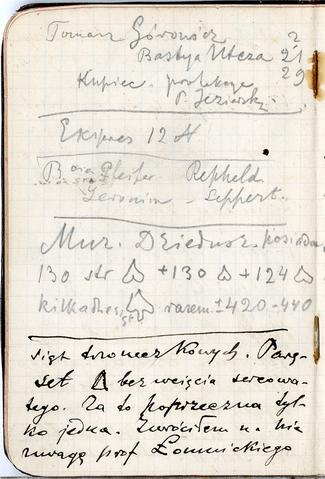 Tomasz Górowicz 2
Bastya Utcza 21
29
Kupiec. protekcja
P. Jeziorski
Ekspres 12 H
B Pleifer. Repheld
Jeronim – Seppert.
Muz. Dziedusz. posiada
130 str +130 +124
kilkadzies. razem ±420–440
siąt trzoneczkowych. Paręset
set Δ bez wcięcia sercowa-
tego. Za to poprzeczna tyl-
ko jedna. Zwróciłem na nie
uwagę prof Łomnickiego